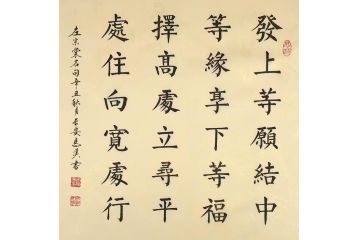 發上等願結中
等緣享下等福
擇高處立尋平
處住向寬處行
左宗棠名句辛丑秋月長安書